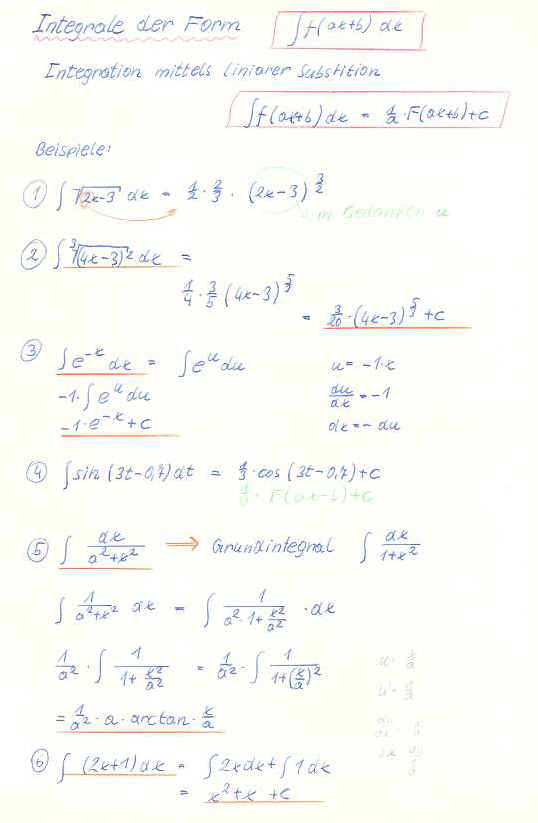 Integrale der Form ∫f(ax+b) dx
Integration mittels liniarer Substition
∫f(ax+b) dx = 1/a · F(ax+b)+C
Beispiele:
① ∫√(2x-3) dx = 1/2 · 2/3 · (2x-3)^(3/2)
in Gedanken u
② ∫∛((4x-3)²) dx =
1/4 · 3/5 (4x-3)^(5/3)
= 3/20 · (4x-3)^(5/3) + C
③ ∫e^(-x) dx = ∫e^u du u = -1·x
-1·∫e^u du du/dx = -1
-1·e^(-x) + C dx = - du
④ ∫sin (3t-0,7) dt = 1/3 · cos (3t-0,7) + C
F(ax-b)+C
⑤ ∫ dx/(a²+x²) ⟹ Grundintegral ∫ dx/(1+x²)
∫ 1/(a²+x²) dx = ∫ 1/(a²·1+x²/a²) · dx
1/a² · ∫ 1/(1+x²/a²) = 1/a² · ∫ 1/(1+(x/a)²)
= 1/a² · a · arctan · x/a
⑥ ∫ (2x+1) dx = ∫2x dx + ∫1 dx
= x² + x + C